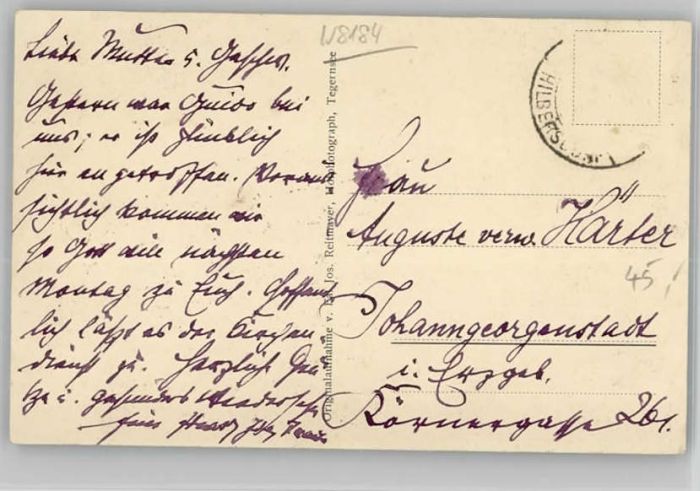 Liebe Mutter u. Geschw.
Gestern war Guido bei
uns; er ist glücklich
hier angetroffen. Voraus-
sichtlich kommen wir
so Gott will nächsten
Montag zu Euch. Hoffent-
lich läßt es der Kirchen-
dienst zu. Herzliche Grü-
ße u. gesundes Wiedersehn
W8184
Originalaufnahme v. Jos. Reitmayer, Hofphotograph, Tegernsee
HILBERSDORF
Frau
Auguste verw. Härter
45,
Johanngeorgenstadt
i. Erzgeb.
Körnergasse 261.